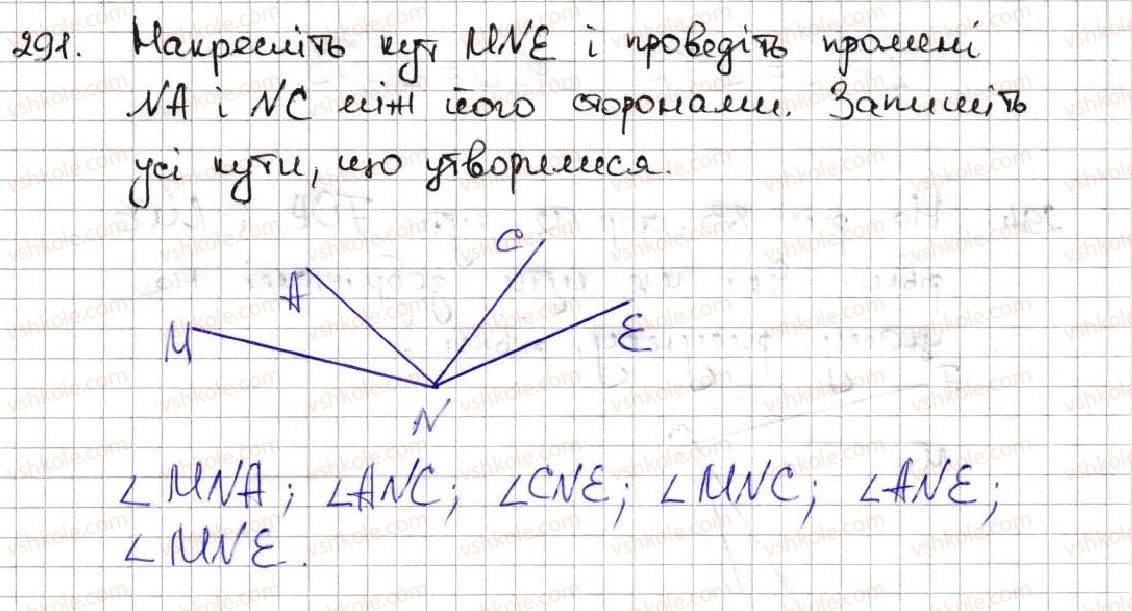 291. Накресліть кут MNE і проведіть промені
NA і NC між його сторонами. Запишіть
усі кути, що утворилися.
C
A
M
E
N
∠MNA; ∠ANC; ∠CNE; ∠MNC; ∠ANE;
∠MNE.